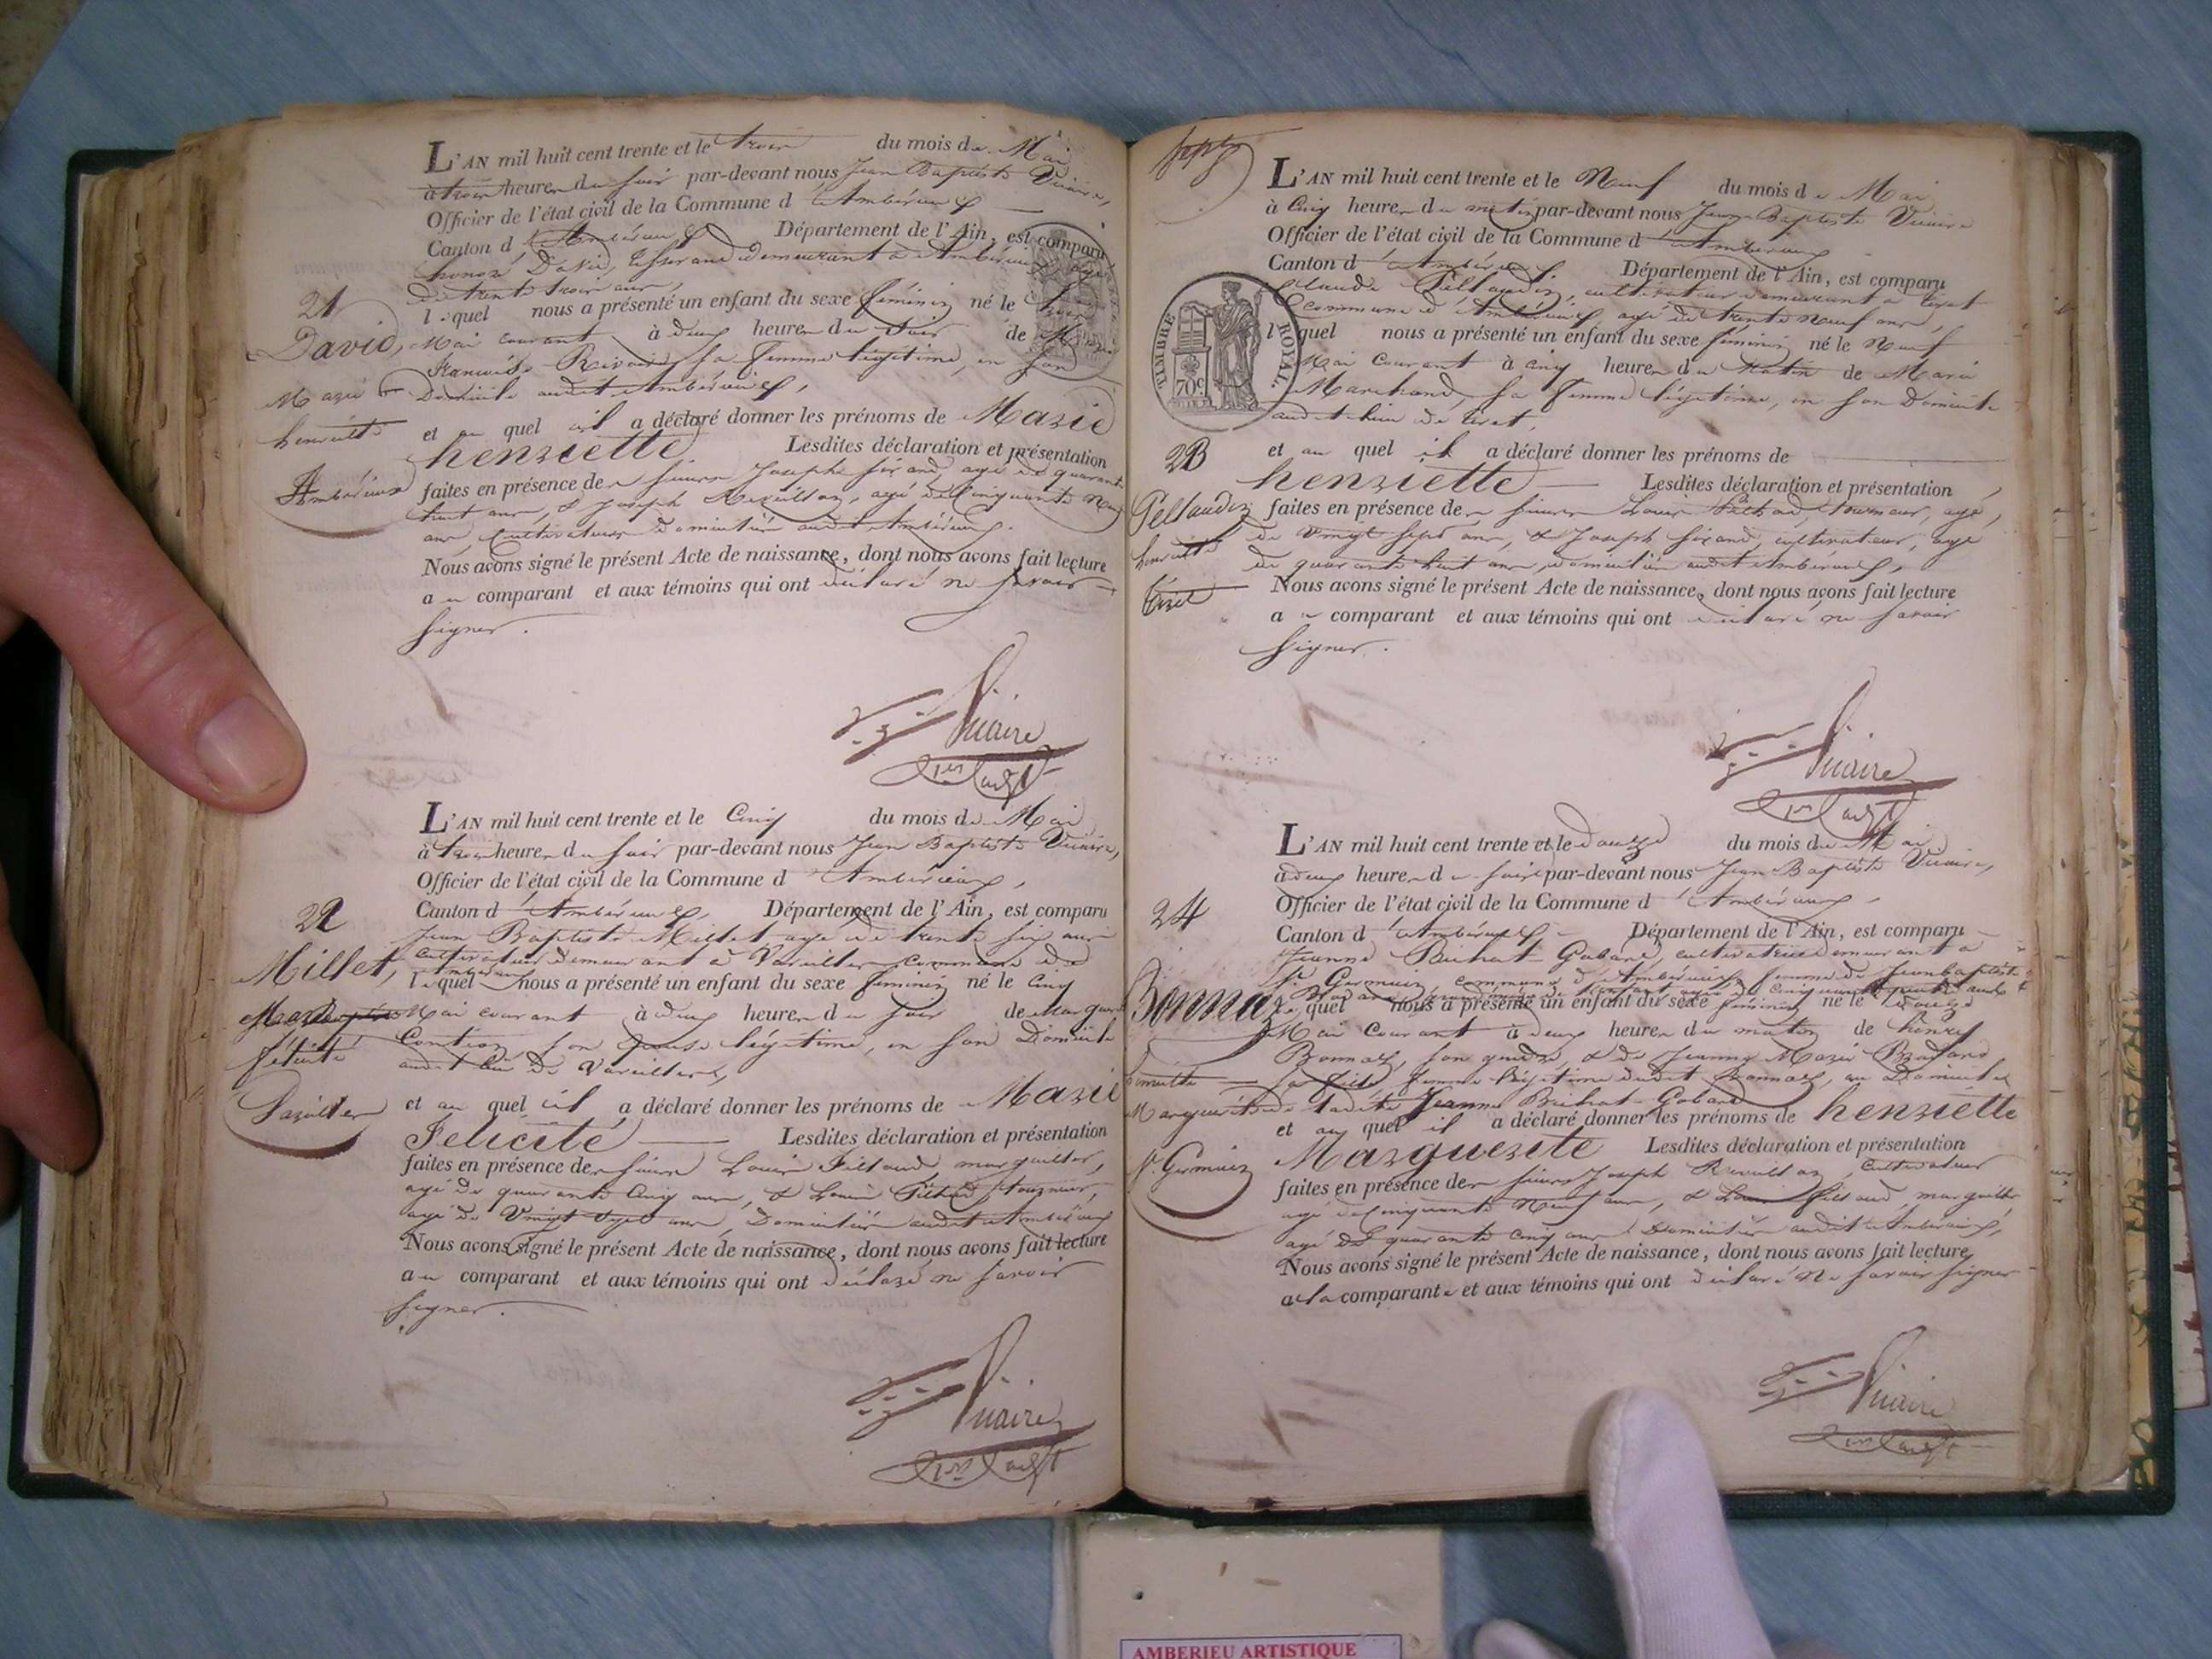 L'AN mil huit cent trente et le trois du mois de Mai
à trois heures du soir par-devant nous Jean Baptiste Vicaire,
Officier de l'état civil de la Commune d'Ambérieux
Canton d'Ambérieux Département de l'Ain, est comparu
honoré David, demeurant à Ambérieux agé
de trente trois ans,
21
lequel nous a présenté un enfant du sexe féminin né le trois
David, Mai courant à deux heures du soir de Marie
françoise sa femme légitime, en son
Marie Domicile audit Ambérieux,
henriette et au quel il a déclaré donner les prénoms de Marie
henriette Lesdites déclaration et présentation
Ambérieux faites en présence des sieurs Joseph sicand, agé de quarante
huit ans, & Joseph Revillon, agé de Cinquante Neuf
ans, Cultivateurs Domiciliés audit Ambérieux.
Nous avons signé le présent Acte de naissance, dont nous avons fait lecture
au comparant et aux témoins qui ont déclaré ne savoir
signer.
Vicaire
L'AN mil huit cent trente et le Cinq du mois de Mai
à trois heures du soir par-devant nous Jean Baptiste Vicaire,
Officier de l'état civil de la Commune d'Ambérieux,
Canton d'Ambérieux, Département de l'Ain, est comparu
22
Jean Baptiste Millet agé de trente six ans
cultivateur demeurant à Vareilles commune de
Millet, Ambérieux
lequel nous a présenté un enfant du sexe féminin né le Cinq
Mai courant à deux heures du soir de Marguerite
félicité son épouse légitime, en son Domicile
audit lieu de Vareilles,
Vareilles et au quel il a déclaré donner les prénoms de Marie
Félicité Lesdites déclaration et présentation
faites en présence des sieurs Louis marguiller,
agé de quarante Cinq ans, & Louis tourneur,
agé de Vingt sept ans, Domiciliés audit Ambérieux
Nous avons signé le présent Acte de naissance, dont nous avons fait lecture
au comparant et aux témoins qui ont déclaré ne savoir
signer.
Vicaire
L'AN mil huit cent trente et le Neuf du mois de Mai
à Cinq heures du matin par-devant nous Jean Baptiste Vicaire
Officier de l'état civil de la Commune d'Ambérieux
Canton d'Ambérieux Département de l'Ain, est comparu
Claude Peltaudin, cultivateur demeurant à tiret
Commune d'Ambérieux agé de trente Neuf ans,
TIMBRE ROYAL. 70c
lequel nous a présenté un enfant du sexe féminin né le Neuf
Mai Courant à cinq heures du Matin de Marie
Marchand, sa femme légitime, en son Domicile
audit lieu de tiret,
23
et au quel il a déclaré donner les prénoms de
henriette Lesdites déclaration et présentation
Peltaudin faites en présence des sieurs Louis tourneur, agé,
henriette de Vingt sept ans, & Joseph sicand, cultivateur, agé
de quarante huit ans, domiciliés audit Ambérieux,
tiret
Nous avons signé le présent Acte de naissance, dont nous avons fait lecture
au comparant et aux témoins qui ont déclaré ne savoir
signer.
Vicaire
L'AN mil huit cent trente et le douze du mois de Mai
à deux heures du soir par-devant nous Jean Baptiste Vicaire,
Officier de l'état civil de la Commune d'Ambérieux,
24
Canton d'Ambérieux Département de l'Ain, est comparu
Jeanne Gobard, cultivatrice demeurant à
St Germain commune d'Ambérieux femme de Jean baptiste
Bonnaz
quel nous a présenté un enfant du sexe féminin né le Douze
Mai Courant à deux heures du matin de henry
Bonnaz, son gendre, & de Jeanne Marie
henriette sa fille femme légitime dudit Bonnaz, au Domicile
Marguerite de ladite Jeanne Gobard
et au quel il a déclaré donner les prénoms de henriette
Marguerite Lesdites déclaration et présentation
St Germain faites en présence des sieurs Joseph Revillon, Cultivateur
agé de Cinquante Neuf ans, & Louis marguiller
agé de quarante Cinq ans Domiciliés audit Ambérieux,
Nous avons signé le présent Acte de naissance, dont nous avons fait lecture
a la comparante et aux témoins qui ont déclaré Ne savoir signer
Vicaire
AMBERIEU ARTISTIQUE